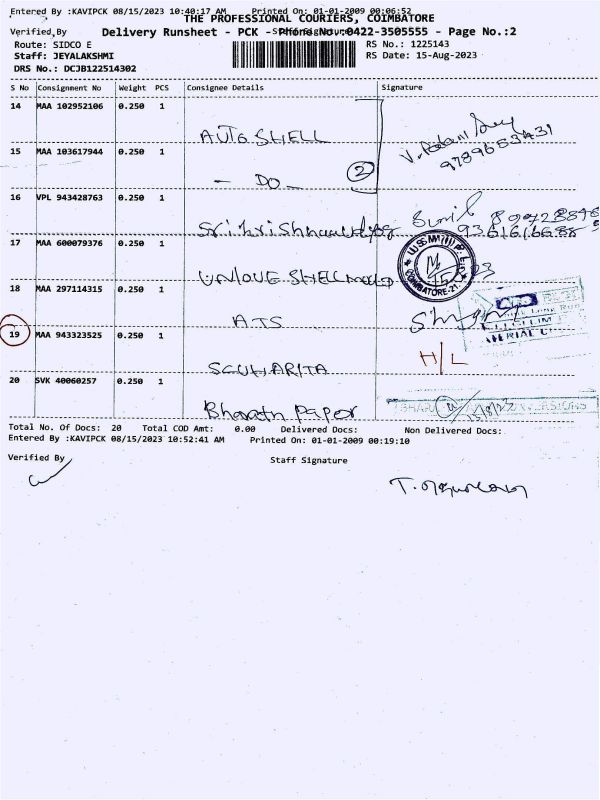 Entered By :KAVIPCK 08/15/2023 10:40:17 AM Printed On: 01-01-2009 00:06:52
THE PROFESSIONAL COURIERS, COIMBATORE
Verified By Staff Signature
Delivery Runsheet - PCK - Phone No.:0422-3505555 - Page No.:2
Route: SIDCO E RS No.: 1225143
Staff: JEYALAKSHMI RS Date: 15-Aug-2023
DRS No.: DCJB122514302
S No Consignment No Weight PCS Consignee Details Signature
14 MAA 102952106 0.250 1
AUTO SHELL
15 MAA 103617944 0.250 1
- DO - 2
9789653431
16 VPL 943428763 0.250 1
Sunil
17 MAA 600079376 0.250 1
UNIQUE SHELL MOULD
COIMBATORE-21
18 MAA 297114315 0.250 1
ATS
19 MAA 943323525 0.250 1
H/L
SGUHARITA
20 SVK 40060257 0.250 1
Bharath Paper
Total No. Of Docs: 20 Total COD Amt: 0.00 Delivered Docs: Non Delivered Docs:
Entered By :KAVIPCK 08/15/2023 10:52:41 AM Printed On: 01-01-2009 00:19:10
Verified By Staff Signature